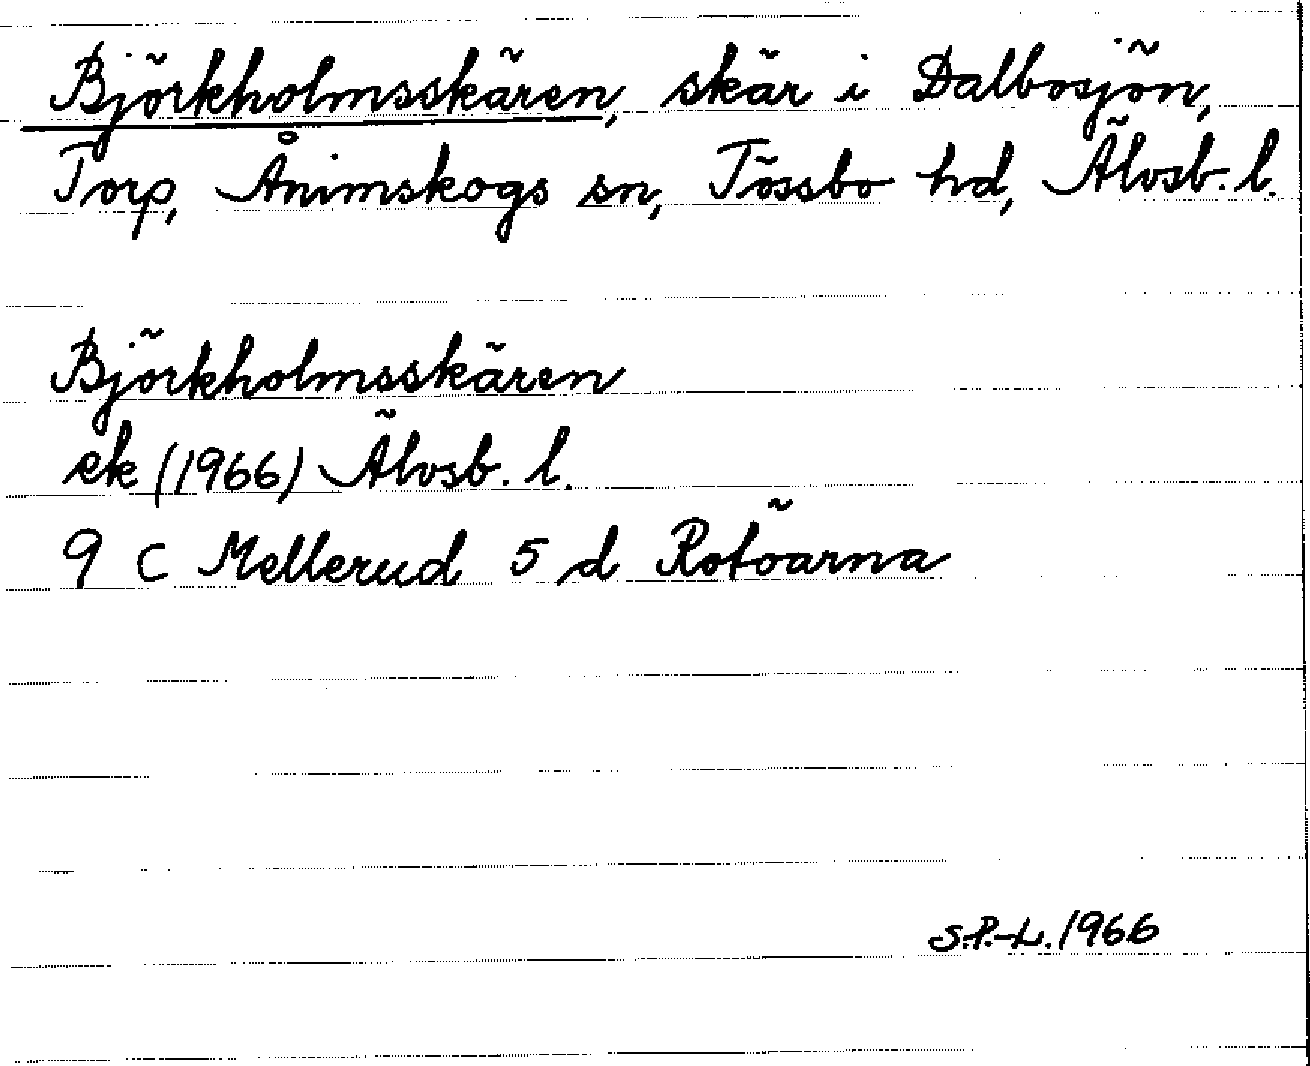 Björkholmsskären, skär i Dalbosjön,
Torp, Ånimskogs sn, Tössbo hd, Älvsb. l.
Björkholmsskären
ek (1966) Älvsb. l.
9 C Mellerud 5 d Rotöarna
S.P.-L. 1966